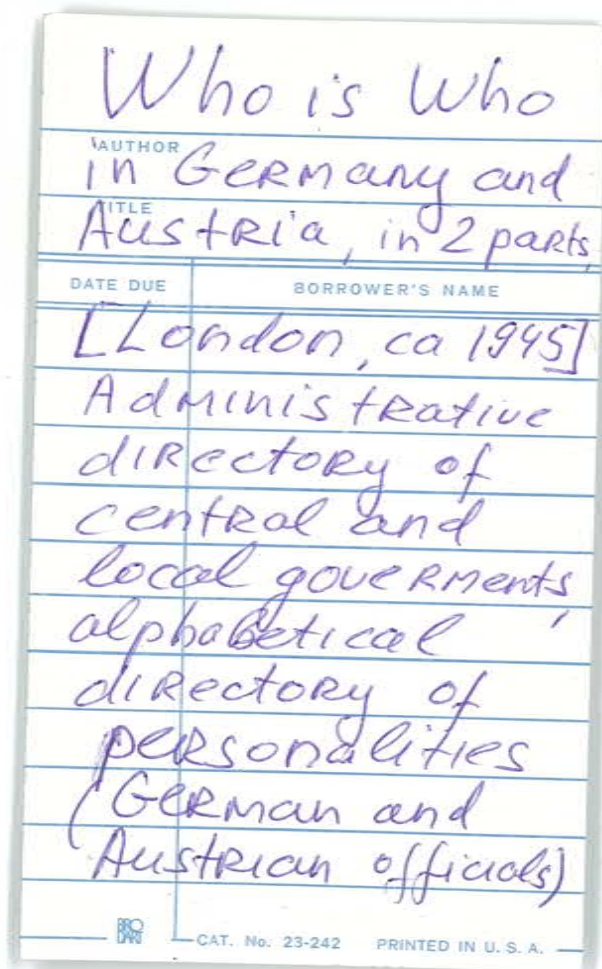 Who is Who
AUTHOR
in Germany and
TITLE
Austria, in 2 parts,
DATE DUE BORROWER'S NAME
[London, ca 1945]
Administrative
directory of
central and
local goverments,
alphabetical
directory of
personalities
(German and
Austrian officials)
BRO
DART
CAT. No. 23-242 PRINTED IN U. S. A.